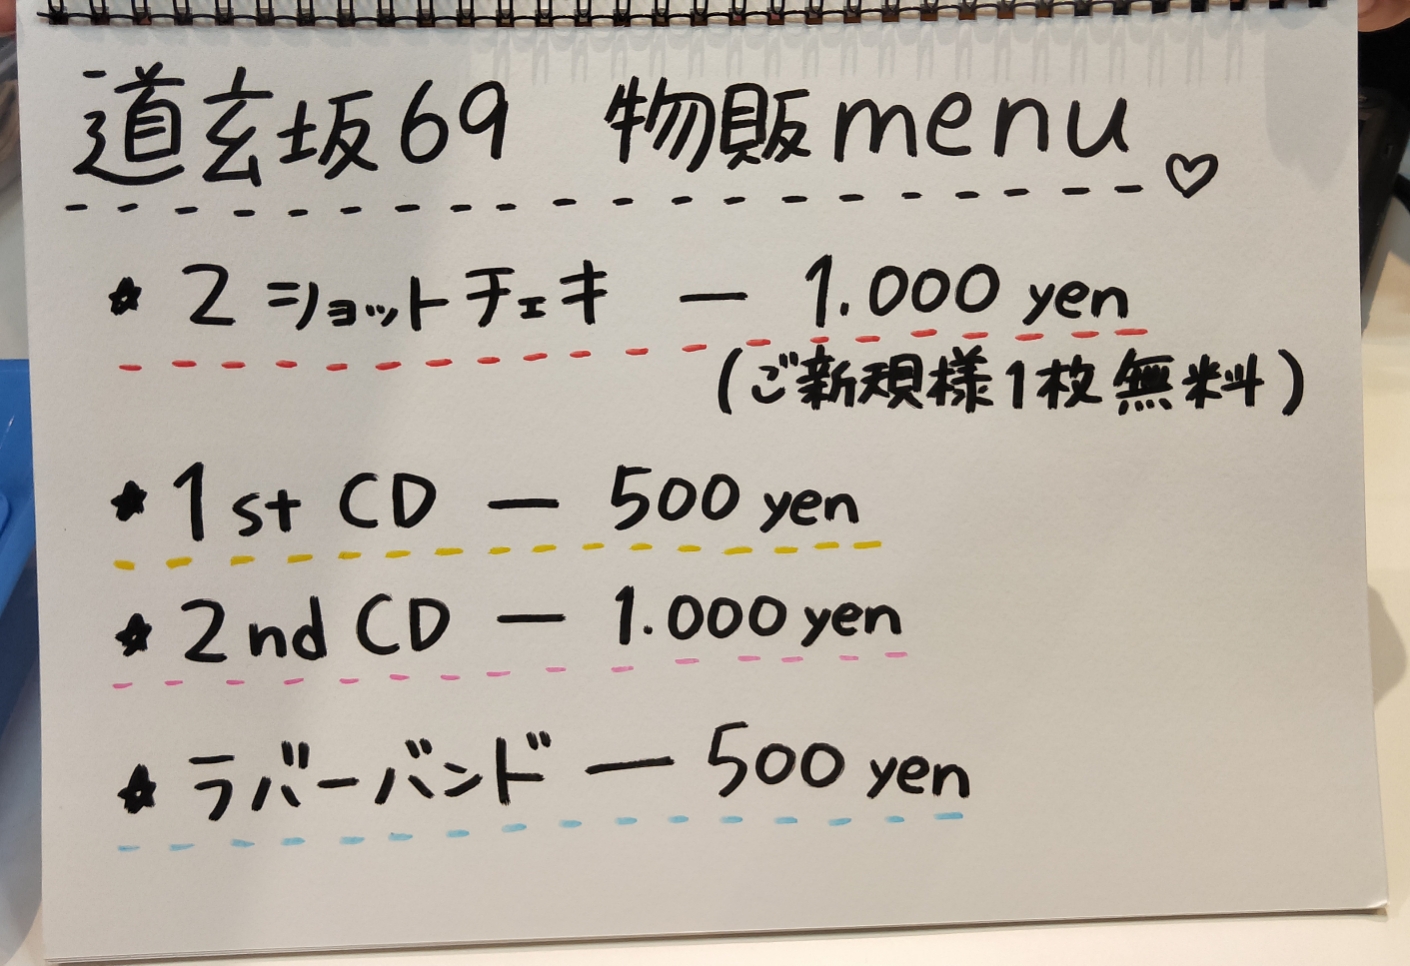 道玄坂69 物販menu♡
★ 2ショットチェキ ー 1.000 yen
(ご新規様1枚無料)
★ 1st CD ー 500 yen
★ 2nd CD ー 1.000 yen
★ ラバーバンド ー 500 yen